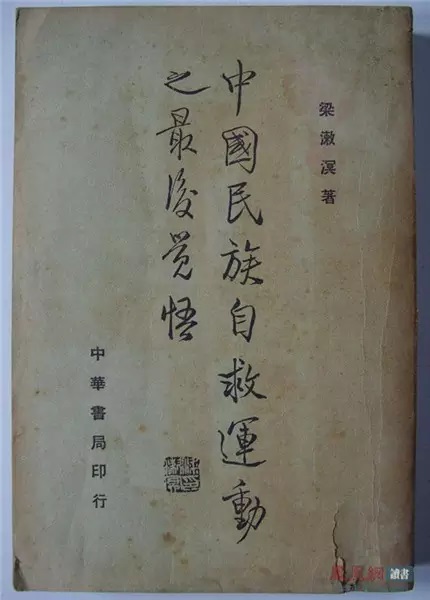 梁漱溟著
中國民族自救運動
之最後觉悟
中華書局印行
鳳凰網
讀書